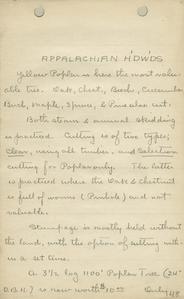 APPALACHIAN H'DW'DS
Yellow Poplar is here the most valu-
able tree. Oak, Chest., Beech, Cucumber
Birch, Maple, Spruce, & Pine also cut.
Both steam & animal skidding
is practiced. Cutting is of two types;
Clear, using all timber, and Selection
cutting for Poplar only. The latter
is practiced where the Oak & Chestnut
is full of worms (Pinhole) and not
valuable.
Stumpage is mostly held without
the land, with the option of cutting with-
in a set time.
A 3½ log 1100' Poplar Tree (24"
D.B.H.) is now worth